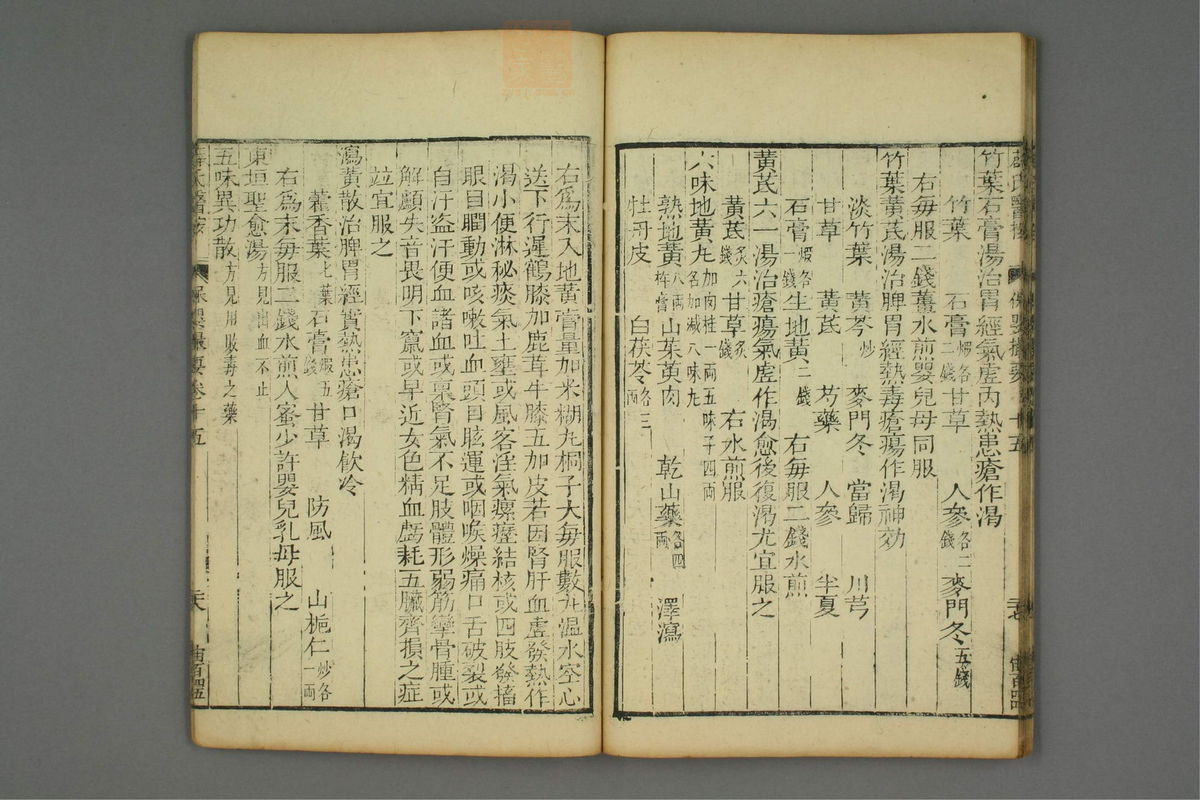 竹葉石膏湯治胃經氣虛内熱患瘡作渴
竹葉 石膏煅各二錢 甘草 人參各二錢 麥門冬五錢
右每服二錢薑水煎嬰兒母同服
竹葉黃芪湯治脾胃經熱毒瘡瘍作渴神効
淡竹葉 黃芩炒 麥門冬 當歸 川芎
甘草 黃芪 芍藥 人參 半夏
石膏煅各一錢 生地黃二錢 右每服二錢水煎
黃芪六一湯治瘡瘍氣虛作渴愈後復渴尤宜服之
黃芪炙六錢 甘草炙錢 右水煎服
六味地黃丸加肉桂一兩五味子四兩名加減八味丸
熟地黃八兩杵膏 山茱萸肉 乾山藥各四兩 澤瀉
牡丹皮 白茯苓各三兩
右為末入地黃膏量加米糊丸桐子大每服數丸溫水空心
送下行遲鶴膝加鹿茸牛膝五加皮若因腎肝血虛發熱作
渴小便淋秘痰氣上壅或風客淫氣瘰癧結核或四肢發搐
眼目瞤動或咳嗽吐血頭目眩運或咽喉燥痛口舌破裂或
自汗盜汗便血諸血或稟腎氣不足肢體形弱筋攣骨腫或
解顱失音畏明下竄或早近女色精血虧耗五臟齊損之症
並宜服之
瀉黃散治脾胃經實熱患瘡口渴飲冷
藿香葉七葉 石膏煅五錢 甘草 防風 山梔仁炒各一兩
右為末每服二錢水煎入蜜少許嬰兒乳母服之
東垣聖愈湯方見出血不止
五味異功散方見用敗毒之藥
保嬰撮要卷十五